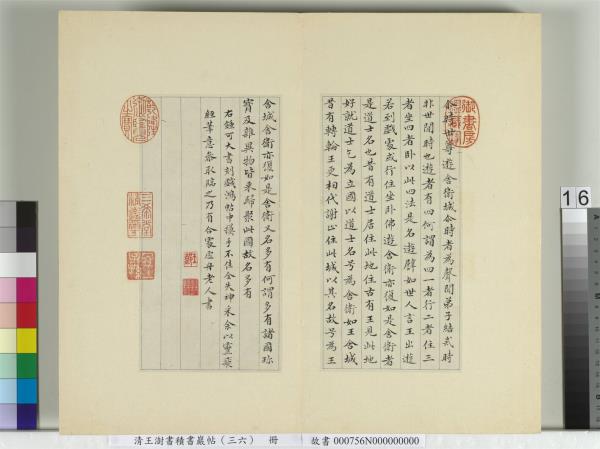 尒時世尊遊舍衛城尒時者為聲聞弟子結戒時
非世間時也遊者有四何謂為四一者行二者住三
者坐四者卧以此四法是名遊譬如世人言王出遊
若到戲處或行住坐卧佛遊舍衛亦復如是舍衛者
是道士名也昔有道士居住此地往古有王見此地
好就道士乞為立國以道士名号為舍衛如王舍城
昔有轉輪王更相代謝止住此城以其名故号為王
舍城舍衛亦復如是舍衛又名多有何謂多有諸國珎
寶及雜異物皆來歸聚此國故名多有
右鍾可大書刻戲鴻帖中摸手不佳全失神采余以靈飛
經筆意參取臨之乃有合處虛舟老人書
16
清王澍書積書巖帖（三六） 冊 故書 000756N000000000